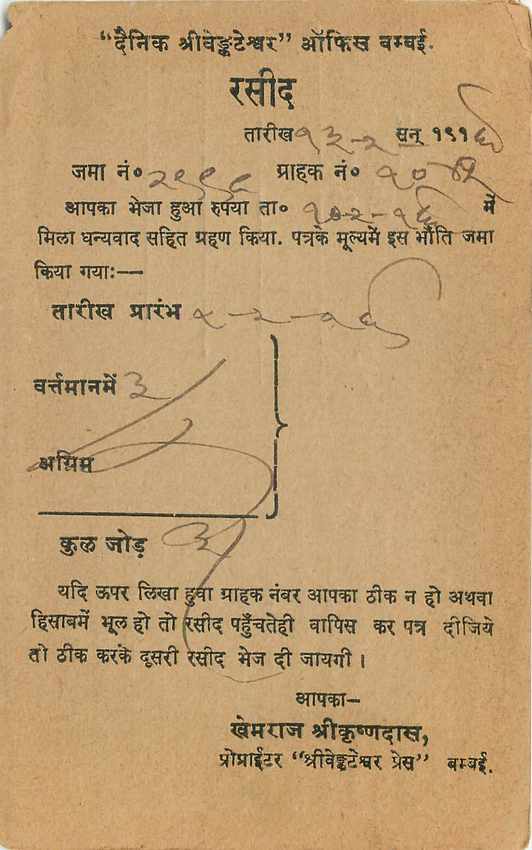 “दैनिक श्रीवेङ्कटेश्वर” ऑफिस बम्बई.
रसीद
तारीख १३-२ सन् १९१६
जमा नं० ग्राहक नं०
आपका भेजा हुआ रुपया ता० १०-२-१६ में
मिला धन्यवाद सहित ग्रहण किया. पत्रके मूल्यमें इस भाँति जमा
किया गया:—
तारीख प्रारंभ
वर्त्तमानमें ३
अग्रिम
कुल जोड़ ३
यदि ऊपर लिखा हुवा ग्राहक नंबर आपका ठीक न हो अथवा
हिसाबमें भूल हो तो रसीद पहुँचतेही वापिस कर पत्र दीजिये
तो ठीक करके दूसरी रसीद भेज दी जायगी।
आपका—
खेमराज श्रीकृष्णदास,
प्रोप्राईटर “श्रीवेङ्कटेश्वर प्रेस” बम्बई.